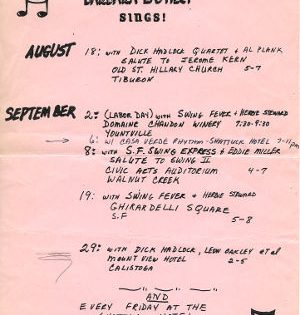 SINGS!
AUGUST 18: WITH DICK HADLOCK QUARTET & AL PLANK
SALUTE TO JEROME KERN
OLD ST. HILLARY CHURCH 5-7
TIBURON
SEPTEMBER 2: (LABOR DAY) WITH SWING FEVER & HERBIE STEWARD
DOMAINE CHANDON WINERY 7:30-9:30
YOUNTVILLE
6: W/ CASA VERDE RHYTHM - SHATTUCK HOTEL 7-11PM
8: WITH S.F. SWING EXPRESS & EDDIE MILLER
SALUTE TO SWING II
CIVIC ARTS AUDITORIUM 4-7
WALNUT CREEK
19: WITH SWING FEVER & HERBIE STEWARD
GHIRARDELLI SQUARE
S.F 5-8
29: WITH DICK HADLOCK, LEON OAKLEY et al
MOUNT VIEW HOTEL 2-5
CALISTOGA
AND
EVERY FRIDAY AT THE